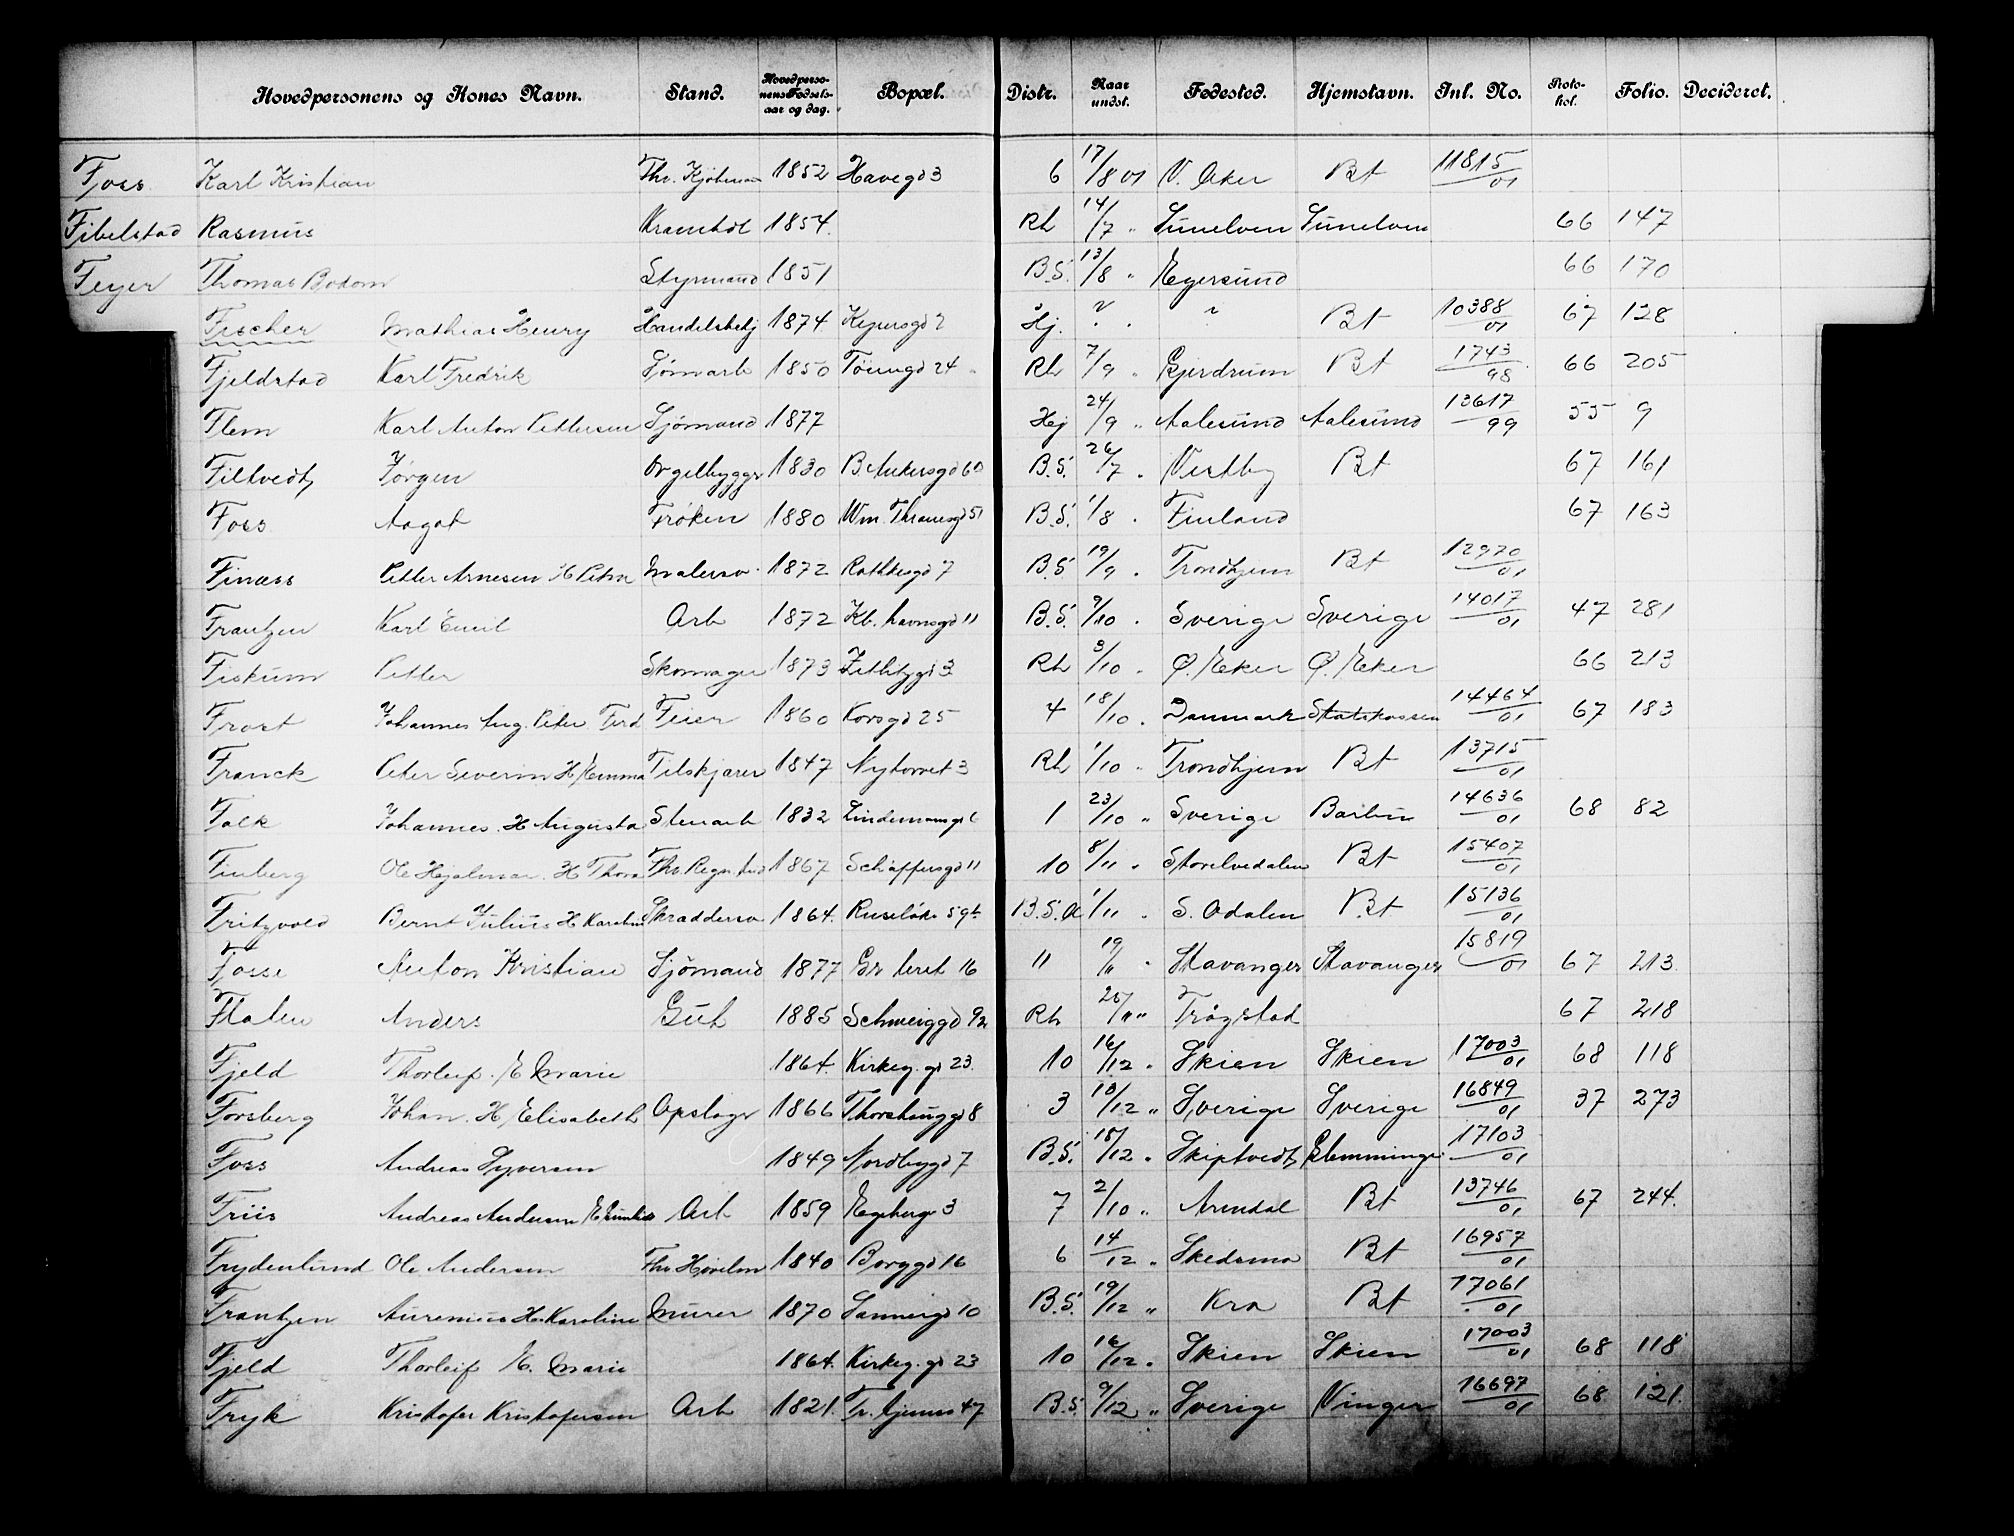 Hovedpersonens og Kones Navn. Stand. Hovedpersonens Fødselsaar og dag. Bopæl. Distr. Naar undst. Fødested. Hjemstavn. Inl. No. Protokol. Folio. Decideret.
Foss Karl Kristian Fhv. 1852 Havegd 3 6 17/8 01 V. Aker Bt 11815/01
Fibelstad Rasmus 1854. Rh 14/7 " Sunelven Sunelven 66 147
Feyer Thomas Bodom Styrmand 1851 B.S. 13/8 " Egersund 66 170
Fischer Mathias Henry Handelsbetj 1874 Hj. " Bt 10388/01 67 128
Fjeldstad Karl Fredrik Sømarb 1850 Töiengd 24 Rh 7/9 " Gjerdrum Bt 1743/98 66 205
Flem Karl Anton Pettersen Sjömand 1877 Hej 24/9 " Aalesund Aalesund 13617/99 55 9
Filtvedt Jørgen Orgelbygger 1830 B Ankersgd 60 B.S. 26/7 . Vestby Bt 67 161
Foss Aagot Frøken 1880 Wm. Thranesgd 51 B.S. 1/8 . Finland 67 163
Finæss Petter Arnesen H Petra Malersv. 1872 Rathkesgd 7 B.S 19/9 . Trondhjem Bt 12970/01
Frantzen Karl Emil Arb 1872 Kb. havnsgd 11 B.S. 9/10 . Sverige Sverige 14017/01 47 281
Fiskum Petter Skomager 1873 3 Rh 3/10 . Ø. Eker Ø. Eker 66 213
Frost Johannes Aug. Peter Ferd Feier 1860 Korsgd 25 4 18/10 . Danmark Statskassen 14464/01 67 183
Franck Peter Severin H Emma Tilskjærer 1847 Nytorvet 3 Rh 1/10 . Trondhjem Bt 13715/01
Falk Johannes. H Augusta Stenarb 1832 Lindemansgt 6 1 23/10 " Sverige Barbu 14636/01 68 82
Finberg Ole Hjalmar. H Thora Fhv. 1867 Schäffersgd 11 10 8/11 " Storelvedalen Bt 15407/01
Fritzvold Bernt Julius H Karoline Skraddersv 1864. Ruseløkv 59b B.S.A 1/11 . S. Odalen Bt 15136/01
Fosse Anton Kristian Sjömand 1877 Gr leret 16 11 19/11 " Stavanger Stavanger 15819/01 67 213.
Flaten Anders Gut 1885 Schweiggd 92 Rh 25/11 " Trøgstad 67 218
Fjeld Thorleif. E Marie 1864. Kirkeg. gd 23. 10 16/12 . Skien Skien 17003/01 68 118
Forsberg Johan. H Elisabeth Opslagr 1866 8 3 13/12 " Sverige Sverige 16849/01 37 273
Foss Andreas Syversen 1849 Nordbygd 7 B.S. 15/12 . Skiptvedt Glemminge 17103/01
Friis Andreas Andersen Arb 1859 Egeberg 3 7 2/10 " Arendal Bt 13746/01 67 244.
Frydenlund Ole Andersen Fhv 1840 Borggd 16 6 14/12 . Skedsmo Bt 16957/01
Frantzen Aurenius H Karoline Murer 1870 Sannergd 10 B.S. 19/12 " Kra Bt 17061/01
Fjeld Thorleif E. Marie 1864. Kirkeg. gd 23 10 16/12 . Skien Skien 17003/01 68 118
Fryk Kristofer Kristofersen Arb 1821. 47 B.S. 9/12 " Sverige Vinger 16697/01 68 121.